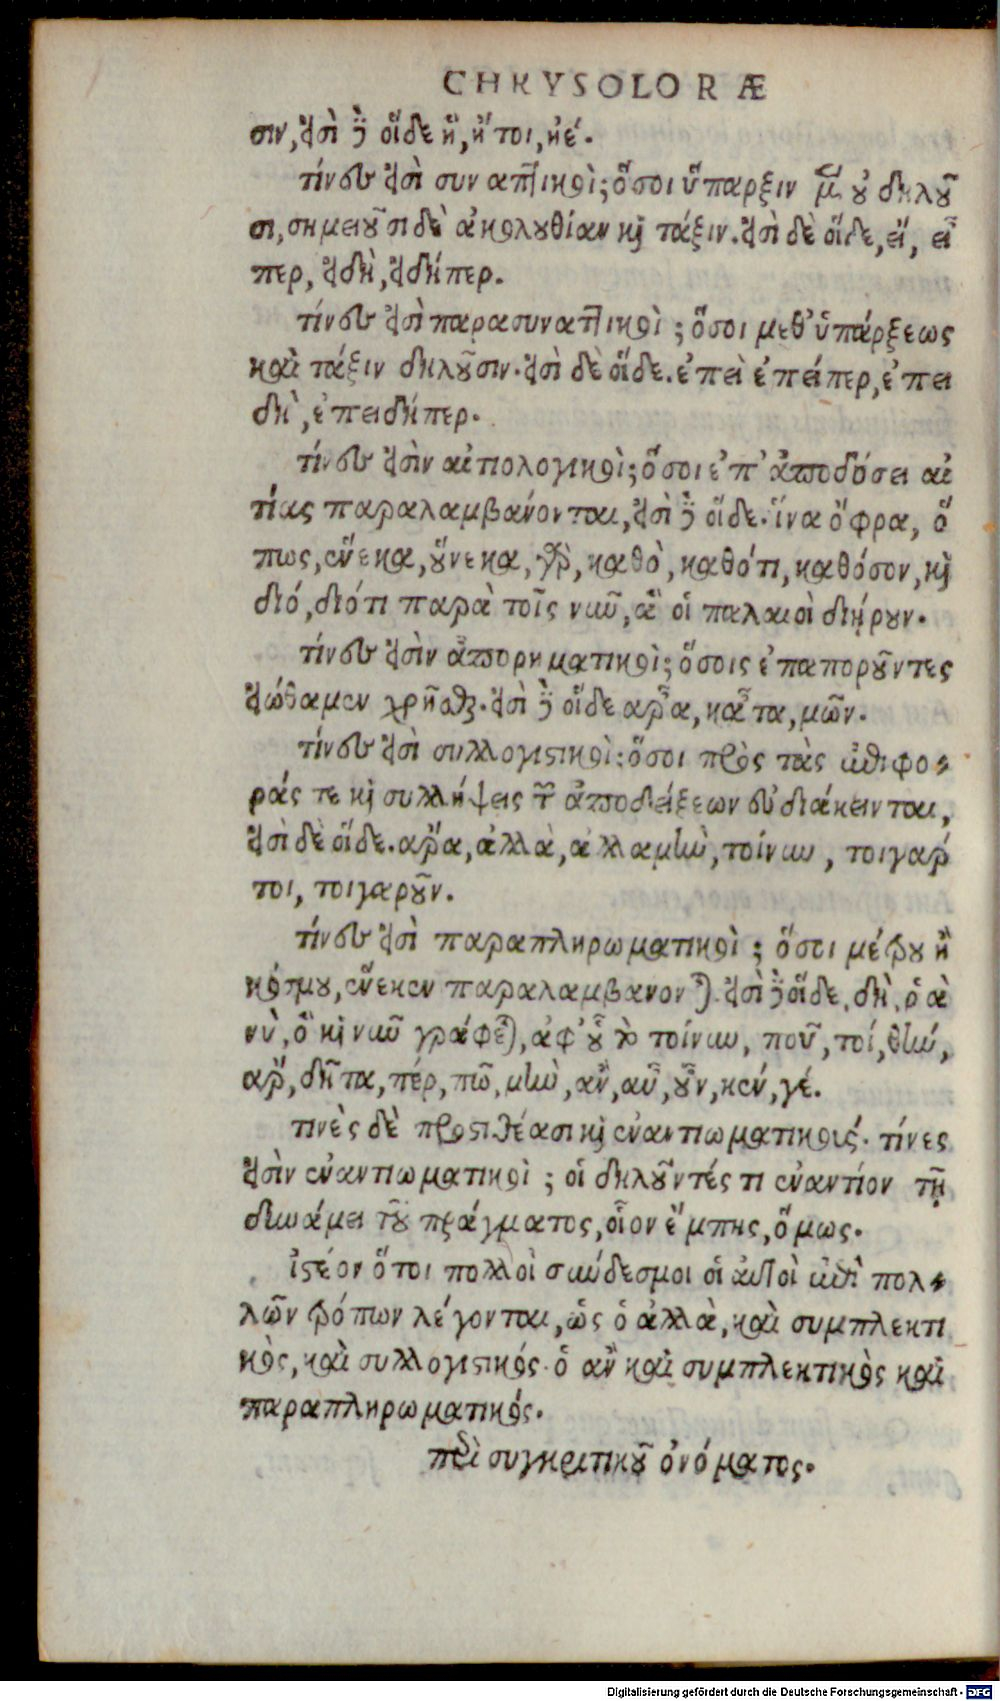 CHRYSOLORÆ
σιν, εἰσὶ δὲ οἵδε ἢ, ἤτοι, ἠέ.
τίνες εἰσὶ συναπτικοὶ; ὅσοι ὕπαρξιν μὲν οὐ δηλοῦ
σι, σημειοῦσι δὲ ἀκολουθίαν καὶ τάξιν. εἰσὶ δὲ οἵδε, εἴ, εἴ
περ, εἰδὴ, εἰδήπερ.
τίνες εἰσὶ παρασυναπτικοὶ; ὅσοι μεθ' ὑπάρξεως
καὶ τάξιν δηλοῦσιν. εἰσὶ δὲ οἵδε. ἐπεὶ ἐπείπερ, ἐπει
δὴ, ἐπειδήπερ.
τίνες εἰσὶν αἰτιολογικοὶ; ὅσοι ἐπ' ἀποδόσει αἰ
τίας παραλαμβάνονται, εἰσὶ δὲ οἵδε. ἵνα ὄφρα, ὅ
πως, ἕνεκα, οὕνεκα, γὰρ, καθὸ, καθότι, καθόσον, καὶ
διό, διότι παρὰ τοῖς νῦν, ἃ οἱ παλαιοὶ διῄρουν.
τίνες εἰσὶν ἀπορηματικοὶ; ὅσοις ἐπαποροῦντες
εἰώθαμεν χρῆσθαι. εἰσὶ δὲ οἵδε ἆρα, κᾆτα, μῶν.
τίνες εἰσὶ συλλογιστικοὶ; ὅσοι πρὸς τὰς ἐπιφο-
ράς τε καὶ συλλήψεις τῶν ἀποδείξεων εὖ διάκεινται,
εἰσὶ δὲ οἵδε. ἄρα, ἀλλὰ, ἀλλαμὴν, τοίνυν, τοιγάρ
τοι, τοιγαροῦν.
τίνες εἰσὶ παραπληρωματικοὶ; ὅσοι μέτρου ἢ
κόσμου, ἕνεκεν παραλαμβάνονται. εἰσὶ δὲ οἵδε, δὴ, ῥὰ
νὺ, ὃ καὶ νῦν γράφεται, ἀφ' οὗ τὸ τοίνυν, ποῦ, τοί, θήν,
ἄρ, δῆτα, πέρ, πῶ, μὴν, ἂν, αὖ, οὖν, κέν, γέ.
τινὲς δὲ προστιθέασι καὶ ἐναντιωματικούς. τίνες
εἰσὶν ἐναντιωματικοὶ; οἱ δηλοῦντές τι ἐναντίον τῇ
δυνάμει τοῦ πράγματος, οἷον ἔμπης, ὅμως.
ἰστέον ὅτοι πολλοὶ σύνδεσμοι οἱ αὐτοὶ ἐπὶ πολ-
λῶν τρόπων λέγονται, ὡς ὁ ἀλλὰ, καὶ συμπλεκτι
κὸς, καὶ συλλογιστικός. ὁ ἂν καὶ συμπλεκτικὸς καὶ
παραπληρωματικός.
περὶ συγκριτικοῦ ὀνόματος.
Digitalisierung gefördert durch die Deutsche Forschungsgemeinschaft - DFG